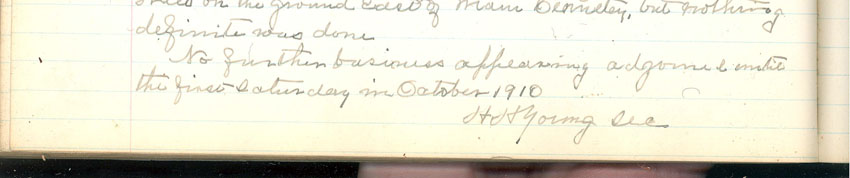 on the ground East of Main Cemetery, but nothing
definite was done
No further business appearing adjourned until
the first Saturday in October 1910
H H Young Sec